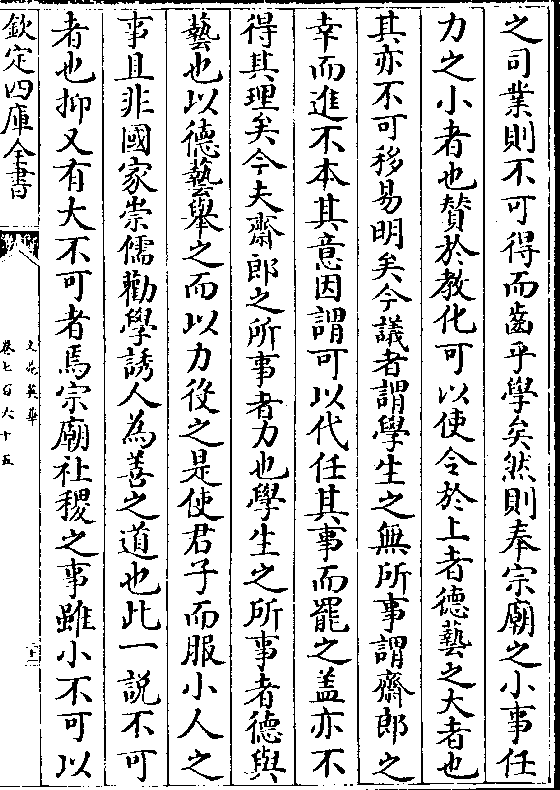 之司業則不可得而齒乎學矣然則奉宗廟之小事任
力之小者也贊於教化可以使令於上者德藝之大者也
其亦不可移易明矣今議者謂學生之無所事謂齋郎之
幸而進不本其意因謂可以代任其事而罷之蓋亦不
得其理矣今夫齋郎之所事者力也學生之所事者德與
藝也以德藝舉之而以力役之是使君子而服小人之
事且非國家崇儒勸學誘人為善之道也此一説不可
者也抑又有大不可者焉宗廟社稷之事雖小不可以
欽定四庫全書
文苑英華
卷七百六十五